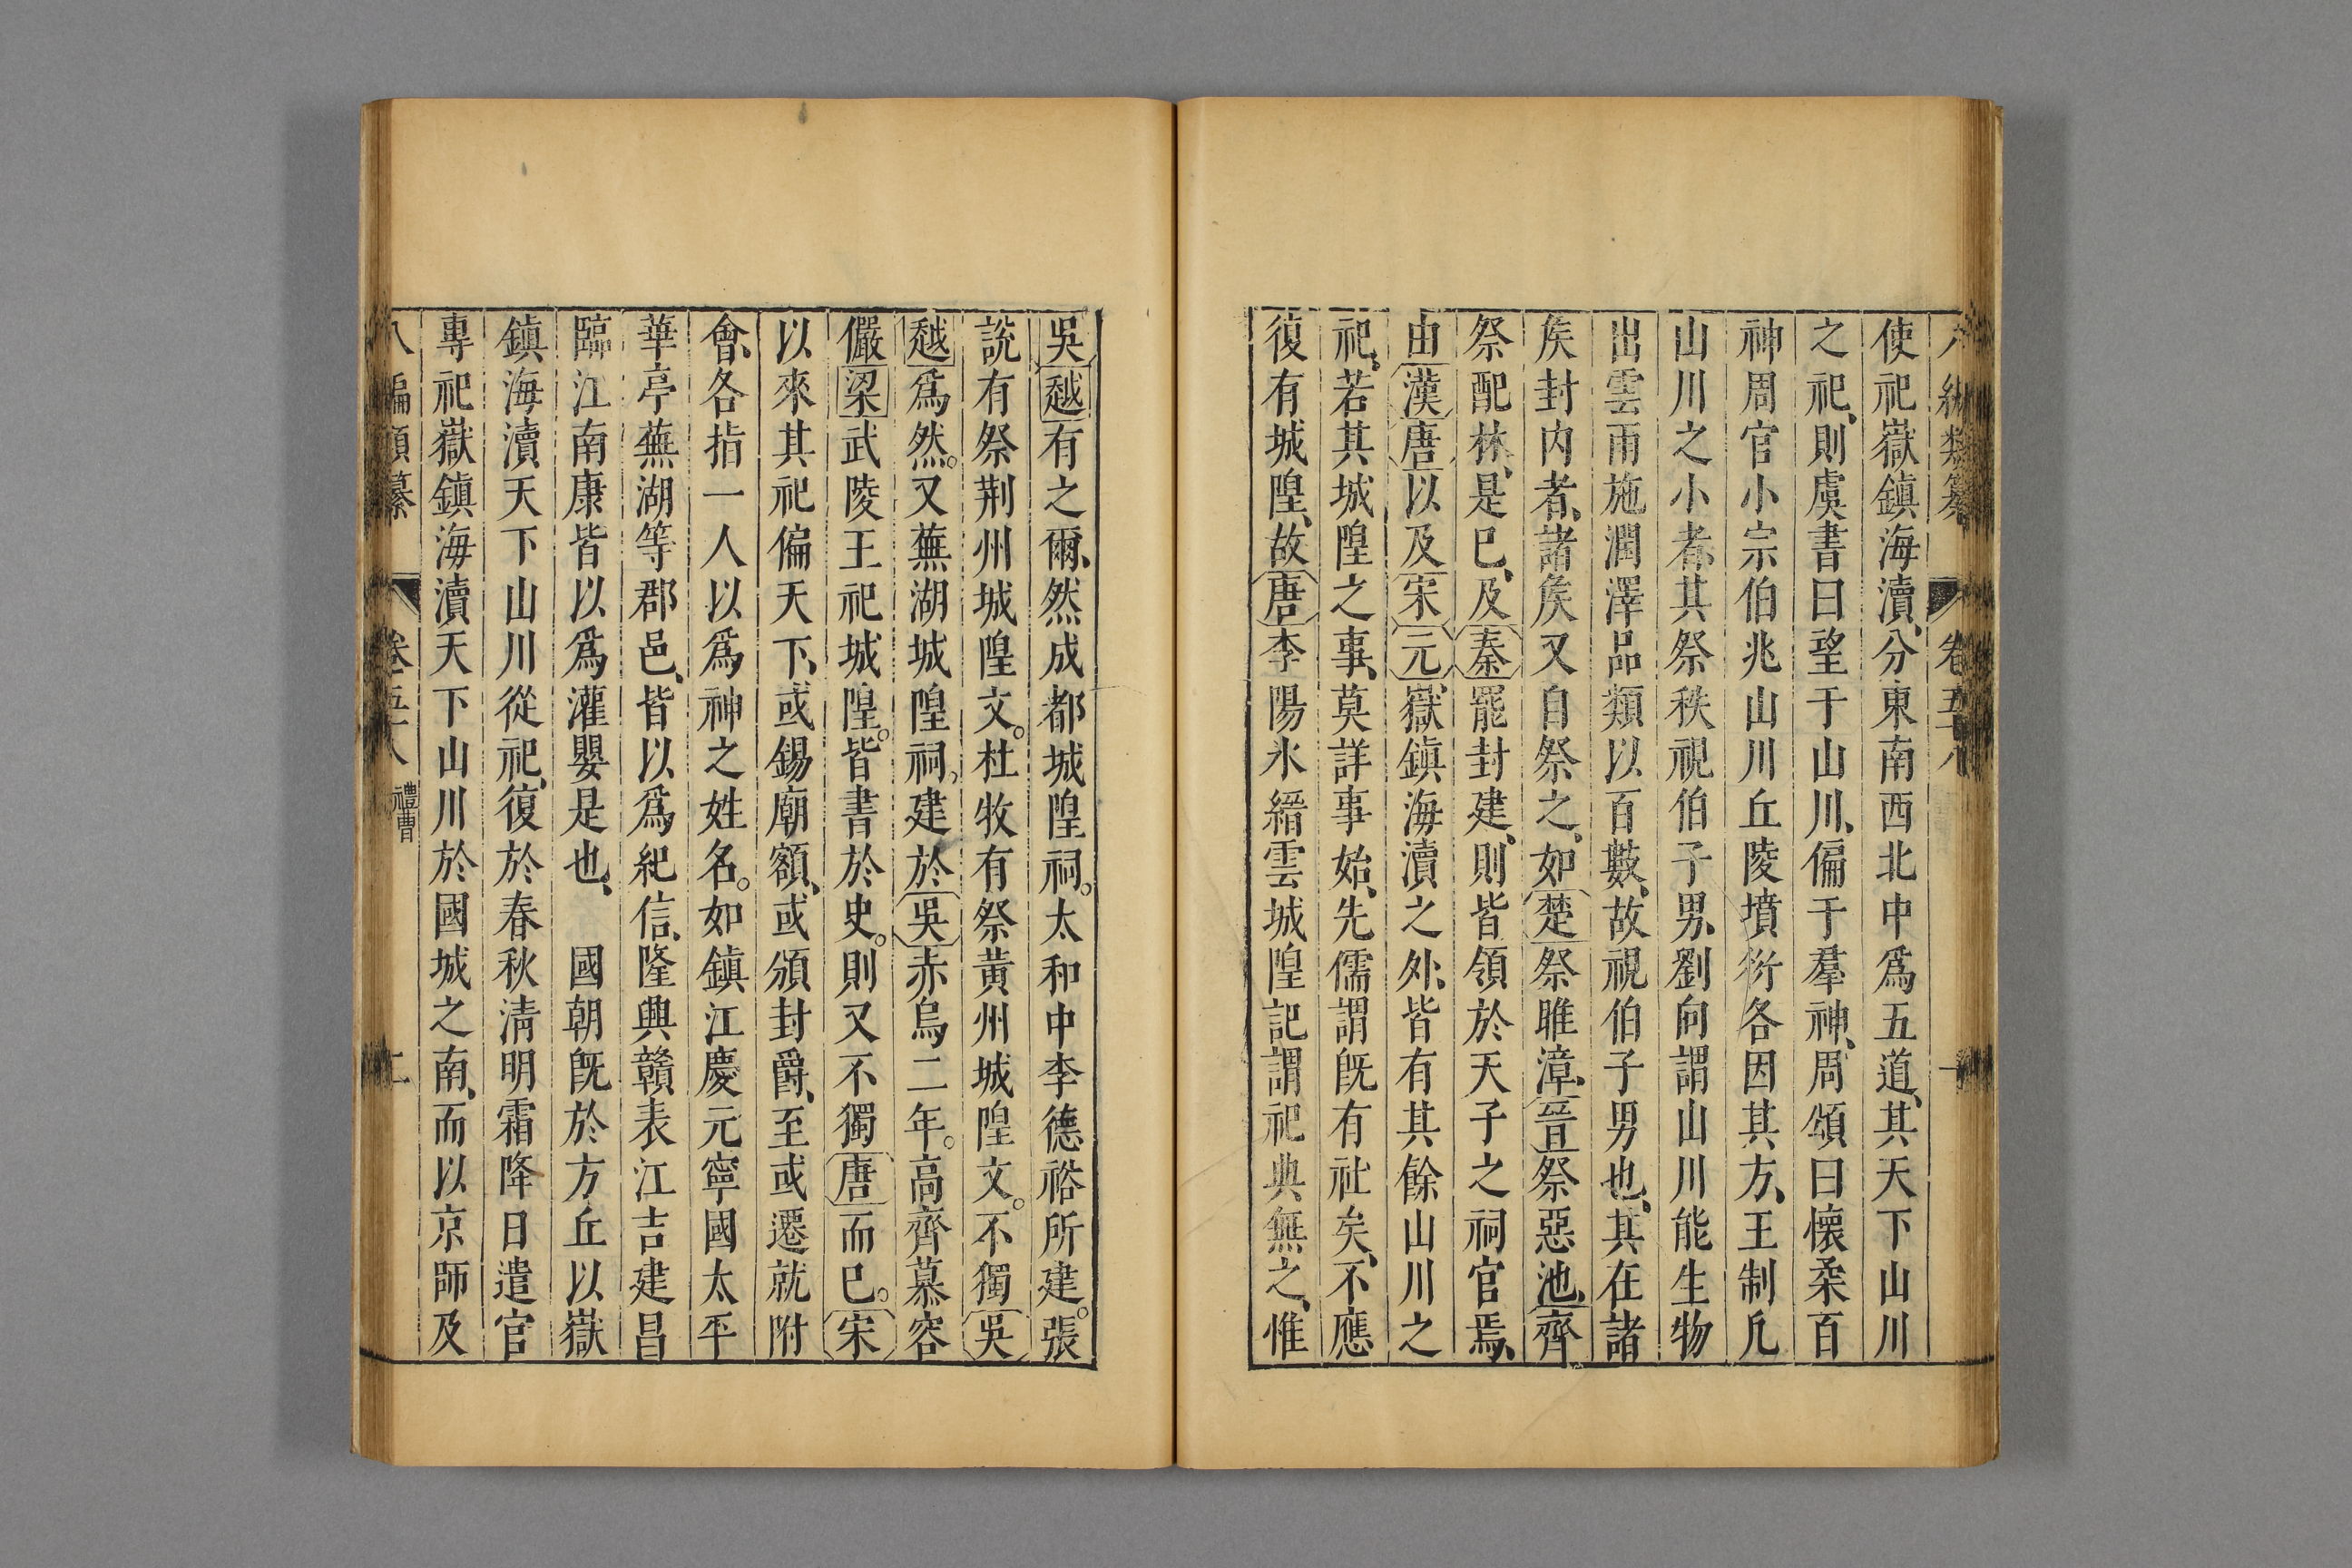 使祀嶽鎮海瀆、分東南西北中爲五道、其天下山川
之祀、則虞書曰望于山川、徧于羣神、周頌曰懷柔百
神周官小宗伯兆山川丘陵墳衍各因其方、王制凡
山川之小者、其祭秩視伯子男、劉向謂山川能生物
出雲雨施潤澤品類以百數、故視伯子男也、其在諸
矦封内者、諸矦又自祭之、如楚祭睢漳、晉祭惡池、齊
祭配林、是已、及秦罷封建、則皆領於天子之祠官焉、
由漢唐以及宋元嶽鎮海瀆之外、皆有其餘山川之
祀、若其城隍之事、莫詳事始、先儒謂旣有社矣、不應
復有城隍、故唐李陽氷縉雲城隍記謂祀典無之、惟
吳越有之爾、然成都城隍祠。太和中李德裕所建。張
說有祭荆州城隍文。杜牧有祭黄州城隍文。不獨吳
越爲然。又蕪湖城隍祠、建於吳赤烏二年。高齊慕容
儼梁武陵王祀城隍。皆書於史。則又不獨唐而已。宋
以來其祀徧天下、或錫廟額、或頒封爵、至或遷就附
會、各指一人以爲神之姓名。如鎮江慶元寧國太平
華亭蕪湖等郡邑、皆以爲紀信、隆興贛袁江吉建昌
臨江南康皆以爲灌嬰是也、　國朝旣於方丘以嶽
鎮海瀆天下山川從祀、復於春秋清明霜降日遣官
專祀嶽鎮海瀆天下山川於國城之南、而以京師及
八編類纂　卷五十八　禮曹